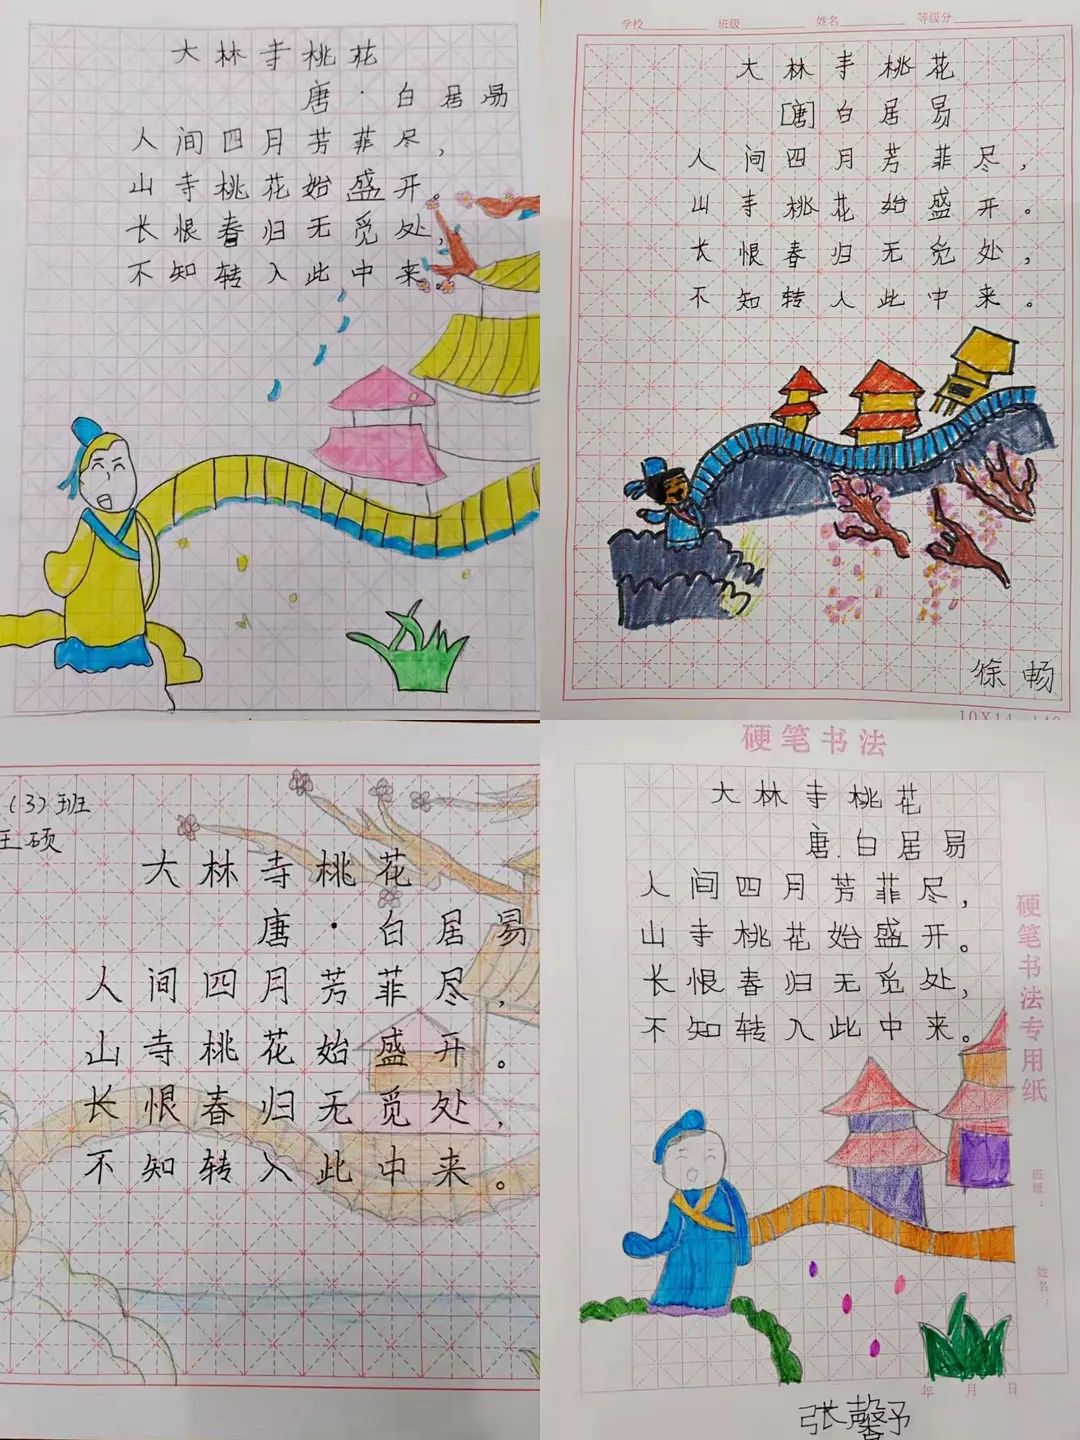 大林寺桃花
唐·白居易
人间四月芳菲尽，
山寺桃花始盛开。
长恨春归无觅处，
不知转入此中来。
学校 班级 姓名 等级分
大林寺桃花
[唐]白居易
人间四月芳菲尽，
山寺桃花始盛开。
长恨春归无觅处，
不知转入此中来。
徐畅
10X14
(3)班
王硕
大林寺桃花
唐·白居易
人间四月芳菲尽，
山寺桃花始盛开。
长恨春归无觅处，
不知转入此中来。
硬笔书法
大林寺桃花
唐.白居易
人间四月芳菲尽，
山寺桃花始盛开。
长恨春归无觅处，
不知转入此中来。
硬笔书法专用纸
班级：
姓名：
年 月 日
张馨予